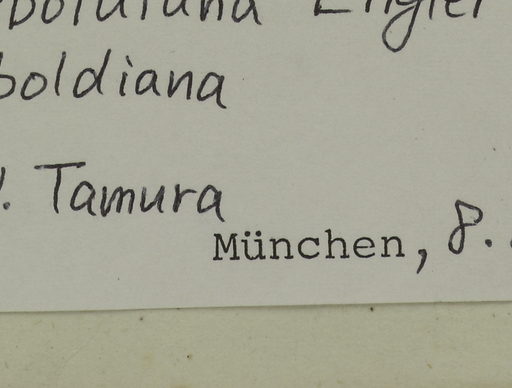 boldiana Engler
boldiana
. Tamura
München, 8.